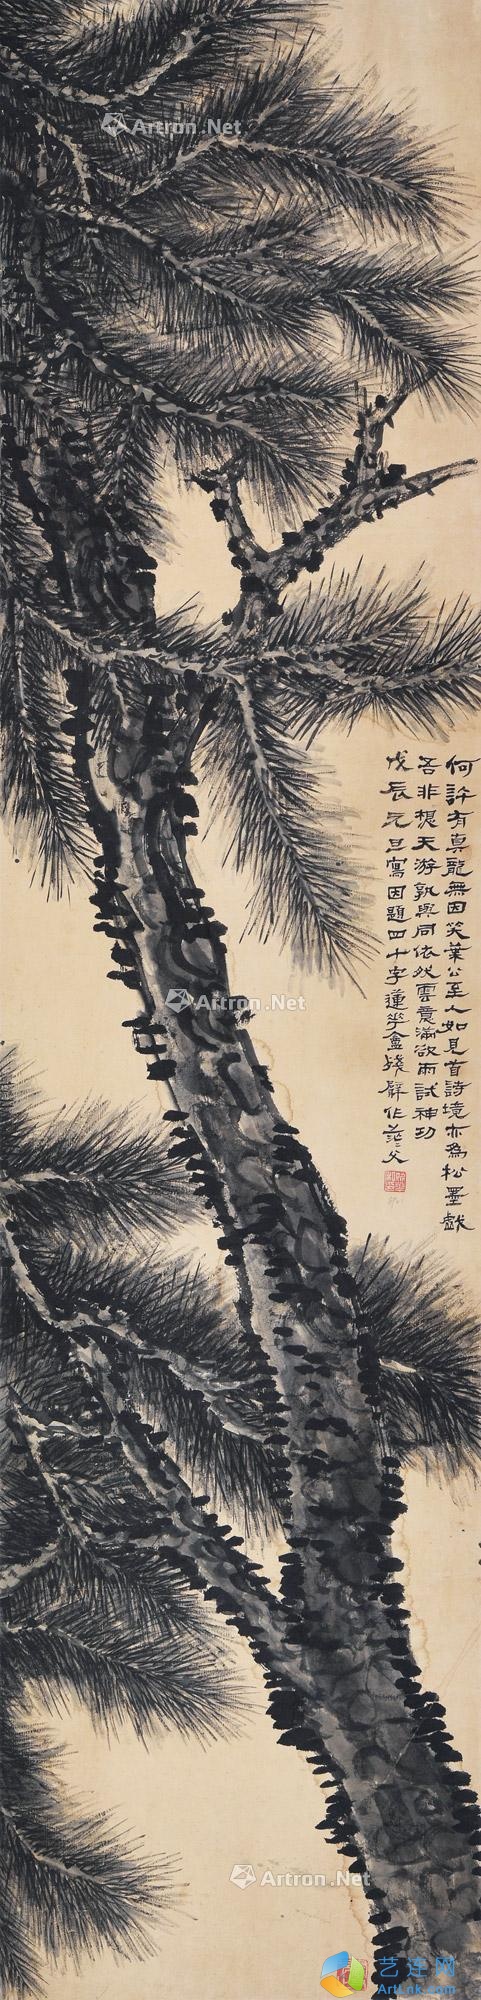 Artron.Net
何許有真龍無因笑葉公至人如見首詩境亦為松墨戲
吾非根天游孰與同依然雲意滿欲雨試神功
戊辰元旦寫因題四十字蓮華盦殘臂作茫父
Artron.Net
Artron.Net
艺连网
ArtLnk.com